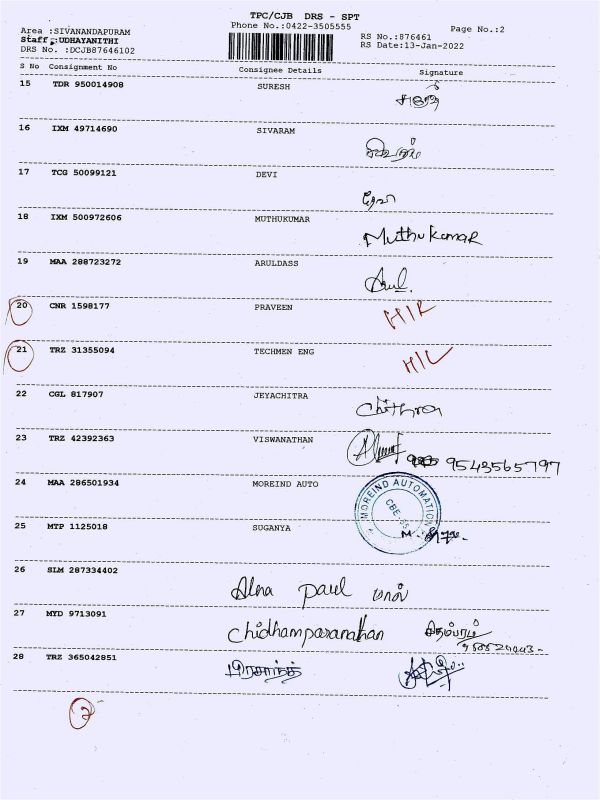 TPC/CJB DRS - SPT
Phone No.:0422-3505555
Page No.:2
Area :SIVANANDAPURAM
Staff :UDHAYANITHI
DRS No. :DCJB87646102
RS No.:876461
RS Date:13-Jan-2022
S No Consignment No Consignee Details Signature
15 TDR 950014908 SURESH
16 IXM 49714690 SIVARAM
17 TCG 50099121 DEVI
18 IXM 500972606 MUTHUKUMAR Muthukumar
19 MAA 288723272 ARULDASS Arul.
20 CNR 1598177 PRAVEEN
21 TRZ 31355094 TECHMEN ENG
22 CGL 817907 JEYACHITRA Chithra
23 TRZ 42392363 VISWANATHAN 9543565797
24 MAA 286501934 MOREIND AUTO MOREIND AUTOMATION
25 MTP 1125018 SUGANYA
26 SLM 287334402 Alna paul பால்
27 MYD 9713091 Chidhamparanathan சிதம்பரம்
28 TRZ 365042851 பிரசாந்த்
2